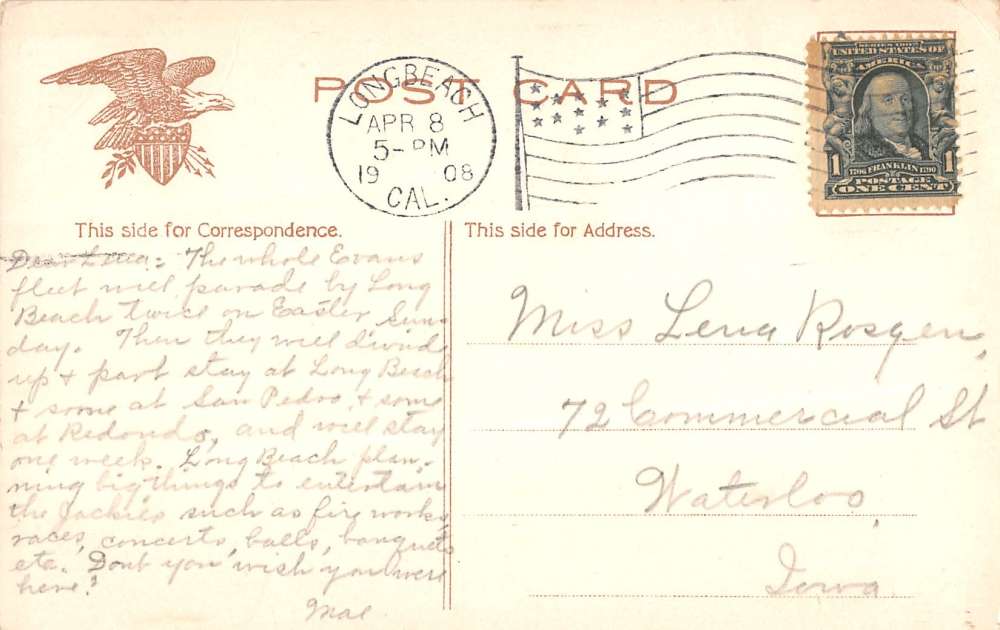 POST CARD
LONG BEACH
APR 8
5- PM
19 08
CAL.
SERIES 1902
UNITED STATES OF
AMERICA
1 FRANKLIN 1
1706 1790
POSTAGE
ONE CENT
This side for Correspondence.
Dear Lena:- The whole Evans
fleet will parade by Long
Beach twice on Easter Sun-
day. Then they will divide
up + part stay at Long Beach
+ some at San Pedro, + some
at Redondo, and will stay
one week. Long Beach plan-
ning big things to entertain
the Jackies such as fire works,
races, concerts, balls, banquets
etc. Dont you wish you were
here?
Mae
This side for Address.
Miss Lena Rosgen,
72 Commercial St
Waterloo,
Iowa.